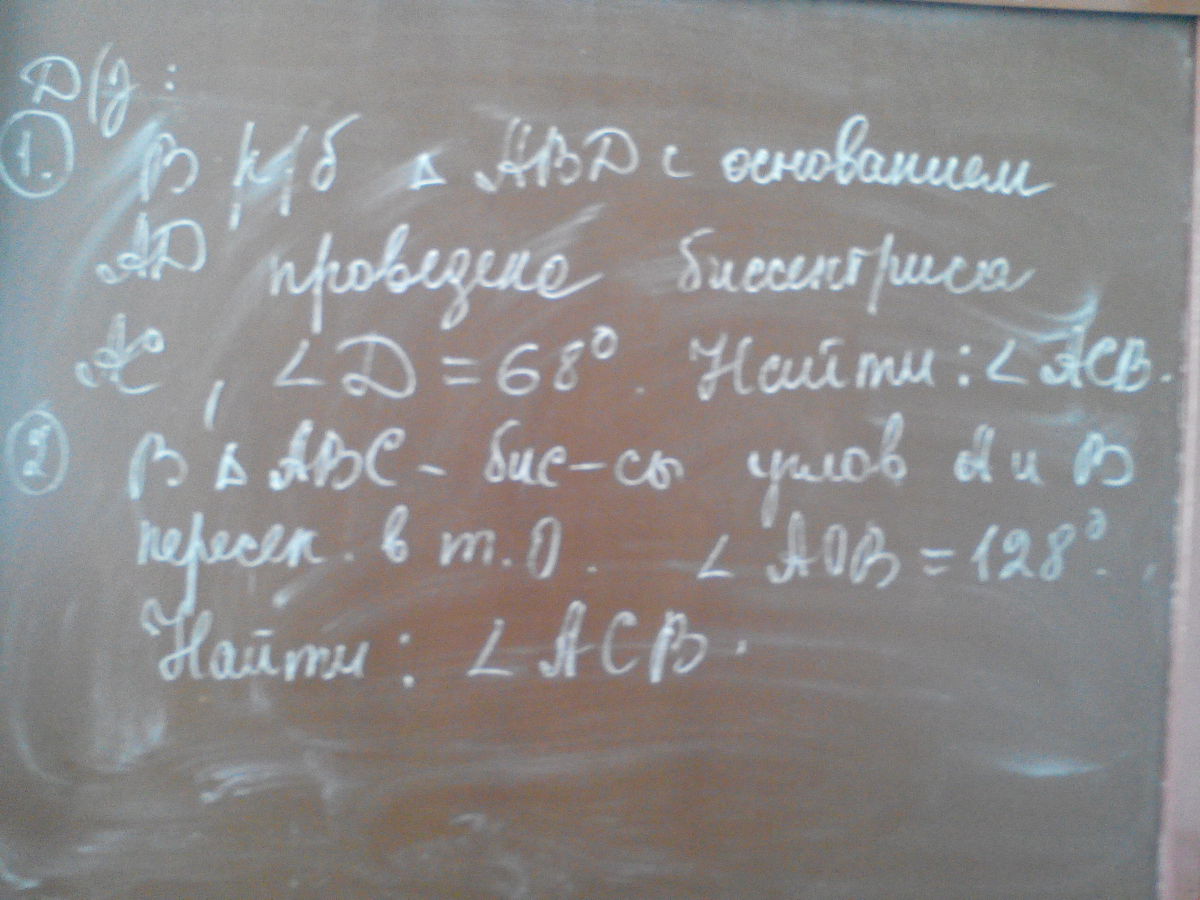 Д/з:
1. В р/б △ ABD с основанием
AD проведена биссектриса
AC, ∠D = 68°. Найти: ∠ACB.
2) В △ ABC - бис-сы углов A и B
пересек. в т. O. ∠ AOB = 128°.
Найти: ∠ ACB.